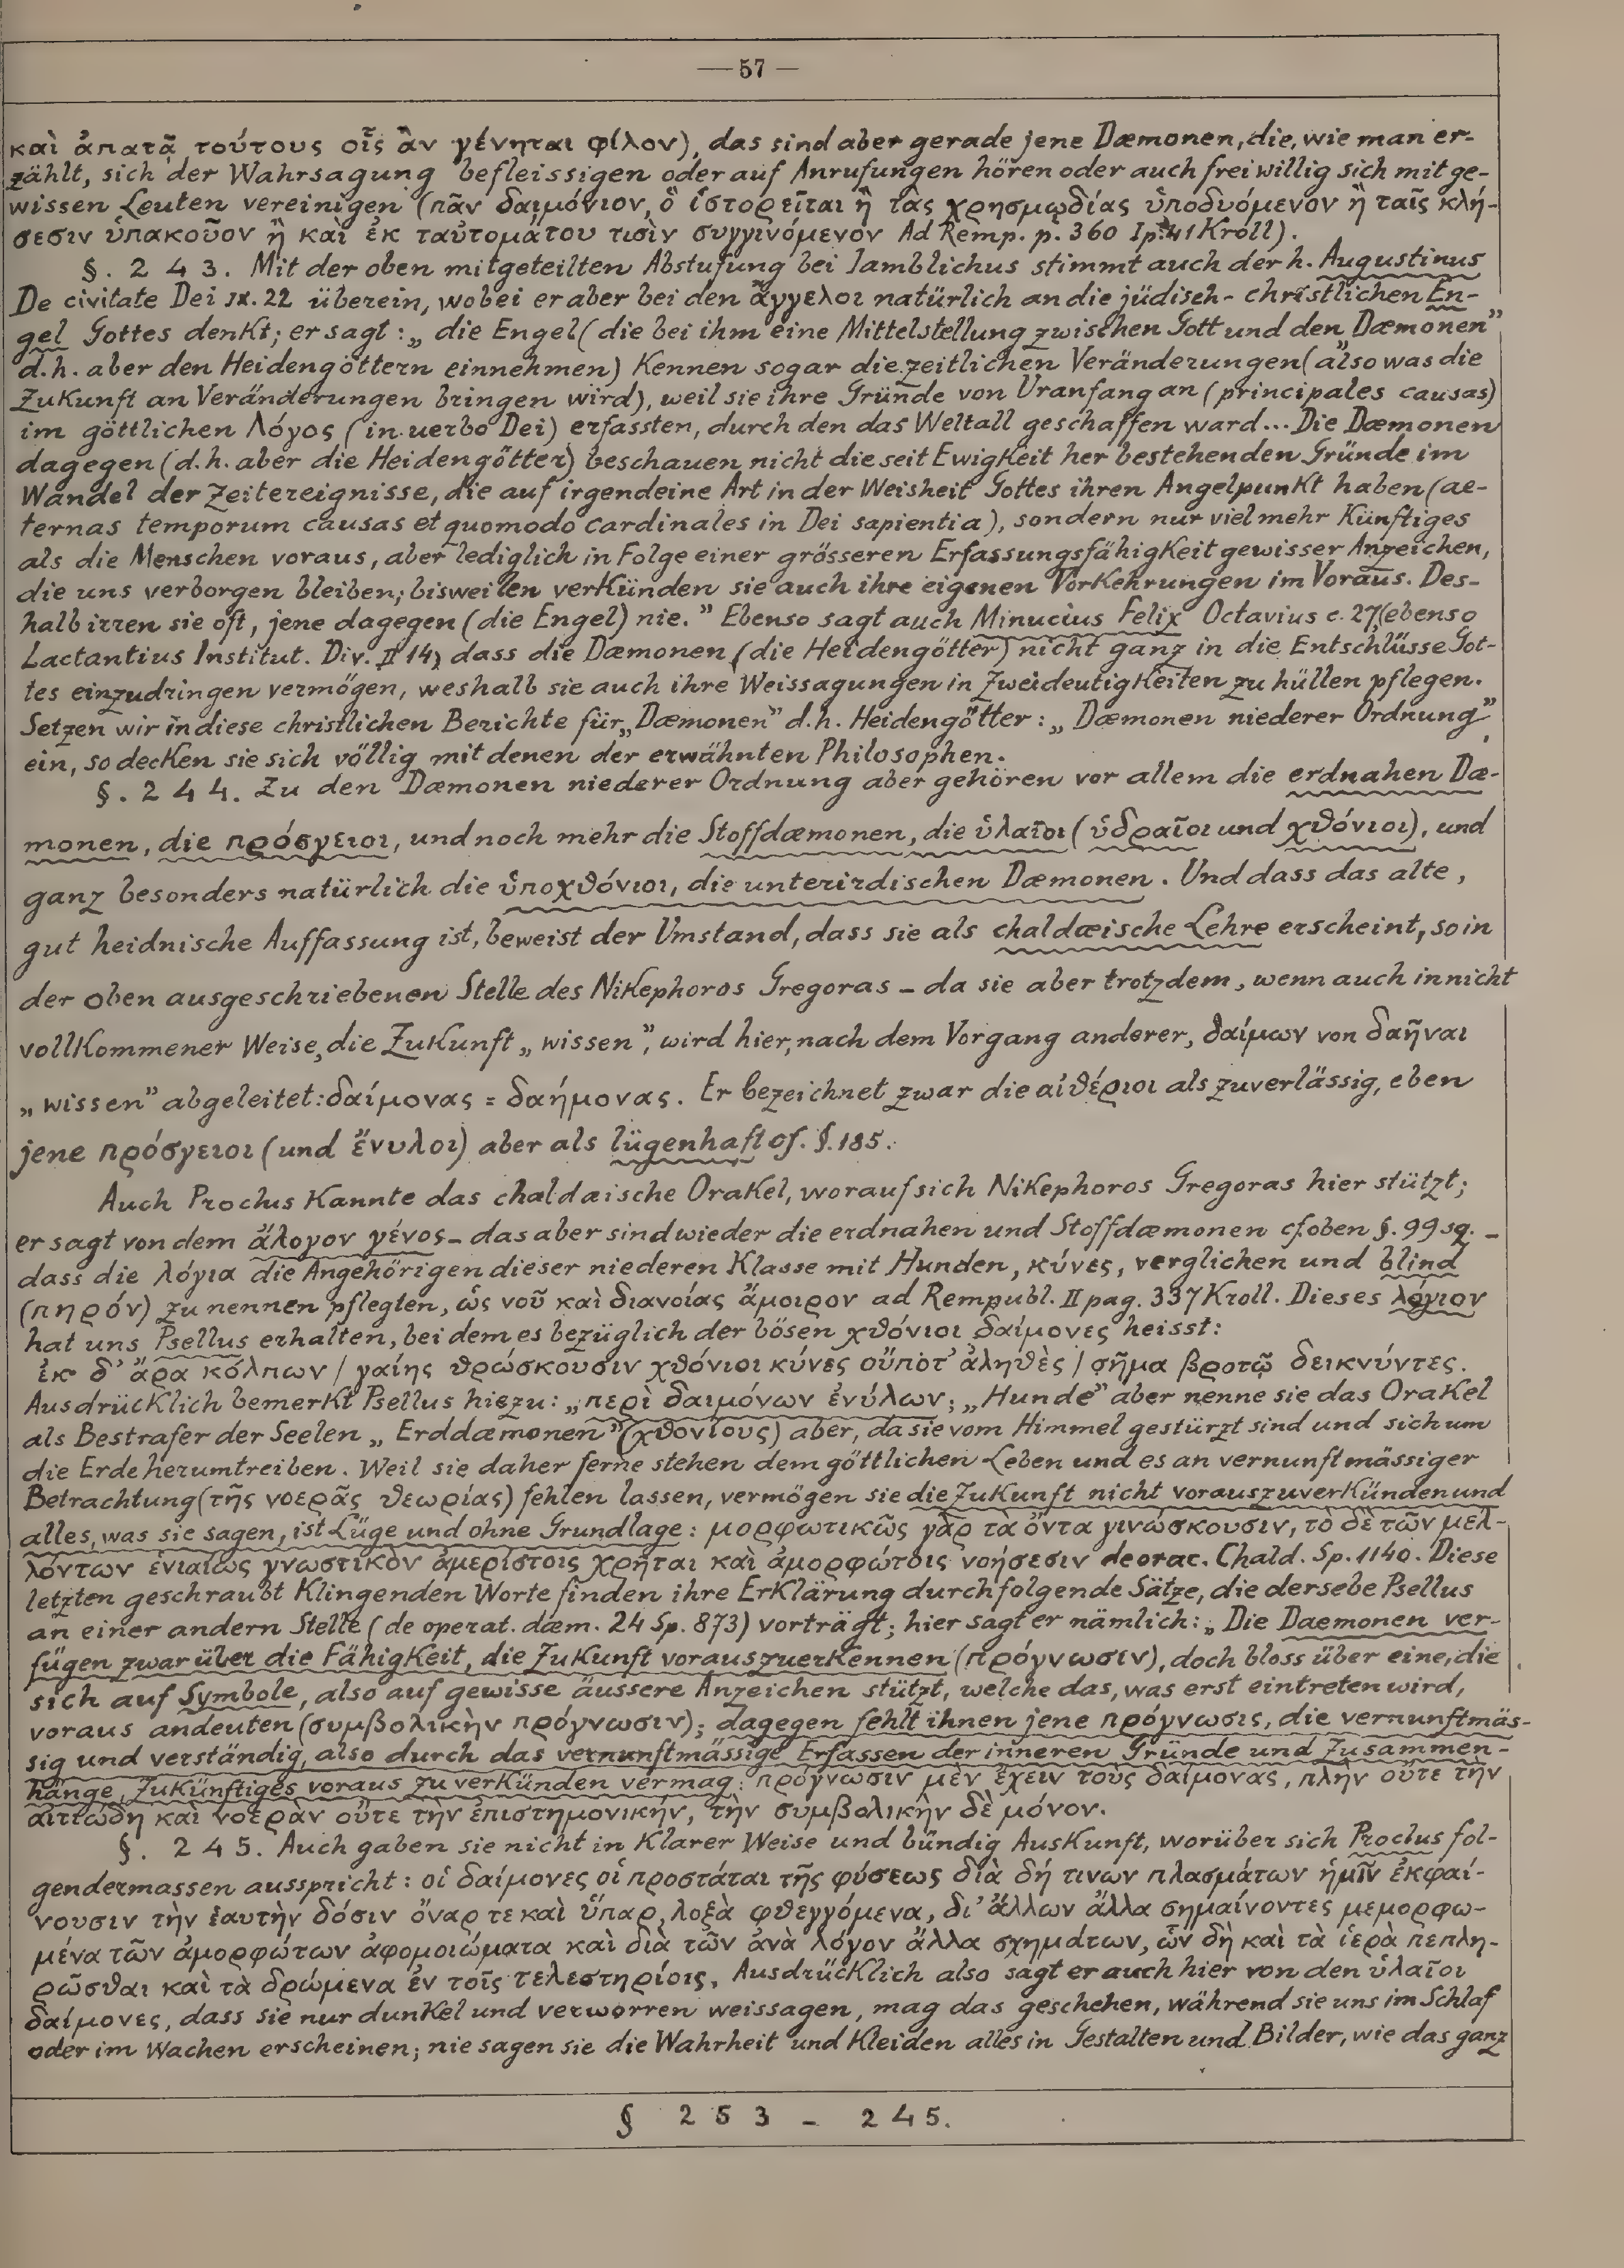 — 57 —
καὶ ἀπατᾷ τούτους οἷς ἂν γένηται φίλον), das sind aber gerade jene Dæmonen, die, wie man er-
zählt, sich der Wahrsagung befleissigen oder auf Anrufungen hören oder auch freiwillig sich mit ge-
wissen Leuten vereinigen (πᾶν δαιμόνιον, ὃ ἱστορεῖται ἢ τὰς χρησμῳδίας ὑποδυόμενον ἢ ταῖς κλή-
σεσιν ὑπακοῦον ἢ καὶ ἐκ ταὐτομάτου τισὶν συγγινόμενον Ad Remp. p. 360 I p. 41 Kroll).
§. 243. Mit der oben mitgeteilten Abstufung bei Iamblichus stimmt auch der h. Augustinus
De civitate Dei IX. 22 überein, wobei er aber bei den ἄγγελοι natürlich an die jüdisch-christlichen En-
gel Gottes denkt; er sagt: „die Engel (die bei ihm eine Mittelstellung zwischen Gott und den „Dæmonen”
d.h. aber den Heidengöttern einnehmen) kennen sogar die zeitlichen Veränderungen (also was die
Zukunft an Veränderungen bringen wird), weil sie ihre Gründe von Uranfang an (principales causas)
im göttlichen Λόγος (in uerbo Dei) erfassten, durch den das Weltall geschaffen ward... Die Dæmonen
dagegen (d.h. aber die Heidengötter) beschauen nicht die seit Ewigkeit her bestehenden Gründe im
Wandel der Zeitereignisse, die auf irgendeine Art in der Weisheit Gottes ihren Angelpunkt haben (ae-
ternas temporum causas et quomodo cardinales in Dei sapientia), sondern nur viel mehr Künftiges
als die Menschen voraus, aber lediglich in Folge einer grösseren Erfassungsfähigkeit gewisser Anzeichen,
die uns verborgen bleiben; bisweilen verkünden sie auch ihre eigenen Vorkehrungen im Voraus. Des-
halb irren sie oft, jene dagegen (die Engel) nie.” Ebenso sagt auch Minucius Felix Octavius c. 27, (ebenso
Lactantius Institut. Div. II 14), dass die Dæmonen (die Heidengötter) nicht ganz in die Entschlüsse Got-
tes einzudringen vermögen, weshalb sie auch ihre Weissagungen in Zweideutigkeiten zu hüllen pflegen.
Setzen wir in diese christlichen Berichte für „Dæmonen” d.h. Heidengötter: „Dæmonen niederer Ordnung”
ein, so decken sie sich völlig mit denen der erwähnten Philosophen.
§. 244. Zu den Dæmonen niederer Ordnung aber gehören vor allem die erdnahen Dæ-
monen, die πρόσγειοι, und noch mehr die Stoffdæmonen, die ὑλαῖοι (ὑδραῖοι und χθόνιοι), und
ganz besonders natürlich die ὑποχθόνιοι, die unterirdischen Dæmonen. Und dass das alte,
gut heidnische Auffassung ist, beweist der Umstand, dass sie als chaldæische Lehre erscheint, so in
der oben ausgeschriebenen Stelle des Nikephoros Gregoras – da sie aber trotzdem, wenn auch in nicht
vollkommener Weise, die Zukunft „wissen”, wird hier, nach dem Vorgang anderer, δαίμων von δαῆναι
„wissen” abgeleitet: δαίμονας = δαήμονας. Er bezeichnet zwar die αἰθέριοι als zuverlässig, eben
jene πρόσγειοι (und ἔνυλοι) aber als lügenhaft cf. §. 185.
Auch Proclus kannte das chaldaische Orakel, worauf sich Nikephoros Gregoras hier stützt;
er sagt von dem ἄλογον γένος – das aber sind wieder die erdnahen und Stoffdæmonen cf. oben §. 99 sq. –
dass die λόγια die Angehörigen dieser niederen Klasse mit Hunden, κύνες, verglichen und blind
(πηρόν) zu nennen pflegten, ὡς νοῦ καὶ διανοίας ἄμοιρον ad Rempubl. II pag. 337 Kroll. Dieses λόγιον
hat uns Psellus erhalten, bei dem es bezüglich der bösen χθόνιοι δαίμονες heisst:
ἐκ δ' ἄρα κόλπων / γαίης θρώσκουσιν χθόνιοι κύνες οὔποτ' ἀληθὲς / σῆμα βροτῷ δεικνύντες.
Ausdrücklich bemerkt Psellus hiezu: „περὶ δαιμόνων ἐνύλων; „Hunde” aber nenne sie das Orakel
als Bestrafer der Seelen „Erddæmonen” (χθονίους) aber, da sie vom Himmel gestürzt sind und sich um
die Erde herumtreiben. Weil sie daher ferne stehen dem göttlichen Leben und es an vernunftmässiger
Betrachtung (τῆς νοερᾶς θεωρίας) fehlen lassen, vermögen sie die Zukunft nicht vorauszuverkünden und
alles, was sie sagen, ist Lüge und ohne Grundlage: μορφωτικῶς γὰρ τὰ ὄντα γινώσκουσιν, τὸ δὲ τῶν μελ-
λόντων ἑνιαίως γνωστικὸν ἀμερίστοις χρῆται καὶ ἀμορφώτοις νοήσεσιν de orac. Chald. Sp. 1140. Diese
letzten geschraubt klingenden Worte finden ihre Erklärung durch folgende Sätze, die dersebe Psellus
an einer andern Stelle (de operat. dæm. 24 Sp. 873) vorträgt; hier sagt er nämlich: „Die Daemonen ver-
fügen zwar über die Fähigkeit, die Zukunft vorauszuerkennen (πρόγνωσιν), doch bloss über eine, die
sich auf Symbole, also auf gewisse äussere Anzeichen stützt, welche das, was erst eintreten wird,
voraus andeuten (συμβολικὴν πρόγνωσιν); dagegen fehlt ihnen jene πρόγνωσις, die vernunftmäs-
sig und verständig, also durch das vernunftmässige Erfassen der inneren Gründe und Zusammen-
hänge, Zukünftiges voraus zu verkünden vermag: πρόγνωσιν μὲν ἔχειν τοὺς δαίμονας, πλὴν οὔτε τὴν
αἰτιώδη καὶ νοερὰν οὔτε τὴν ἐπιστημονικήν, τὴν συμβολικὴν δὲ μόνον.
§. 245. Auch gaben sie nicht in klarer Weise und bündig Auskunft, worüber sich Proclus fol-
gendermassen ausspricht: οἱ δαίμονες οἱ προστάται τῆς φύσεως διὰ δή τινων πλασμάτων ἡμῖν ἐκφαί-
νουσιν τὴν ἑαυτὴν δόσιν ὄναρ τε καὶ ὕπαρ, λοξὰ φθεγγόμενα, δι' ἄλλων ἄλλα σημαίνοντες μεμορφω-
μένα τῶν ἀμορφώτων ἀφομοιώματα καὶ διὰ τῶν ἀνὰ λόγον ἄλλα σχημάτων, ὧν δὴ καὶ τὰ ἱερὰ πεπλη-
ρῶσθαι καὶ τὰ δρώμενα ἐν τοῖς τελεστηρίοις. Ausdrücklich also sagt er auch hier von den ὑλαῖοι
δαίμονες, dass sie nur dunkel und verworren weissagen, mag das geschehen, während sie uns im Schlaf
oder im Wachen erscheinen; nie sagen sie die Wahrheit und kleiden alles in Gestalten und Bilder, wie das ganz
§ 253 – 245.